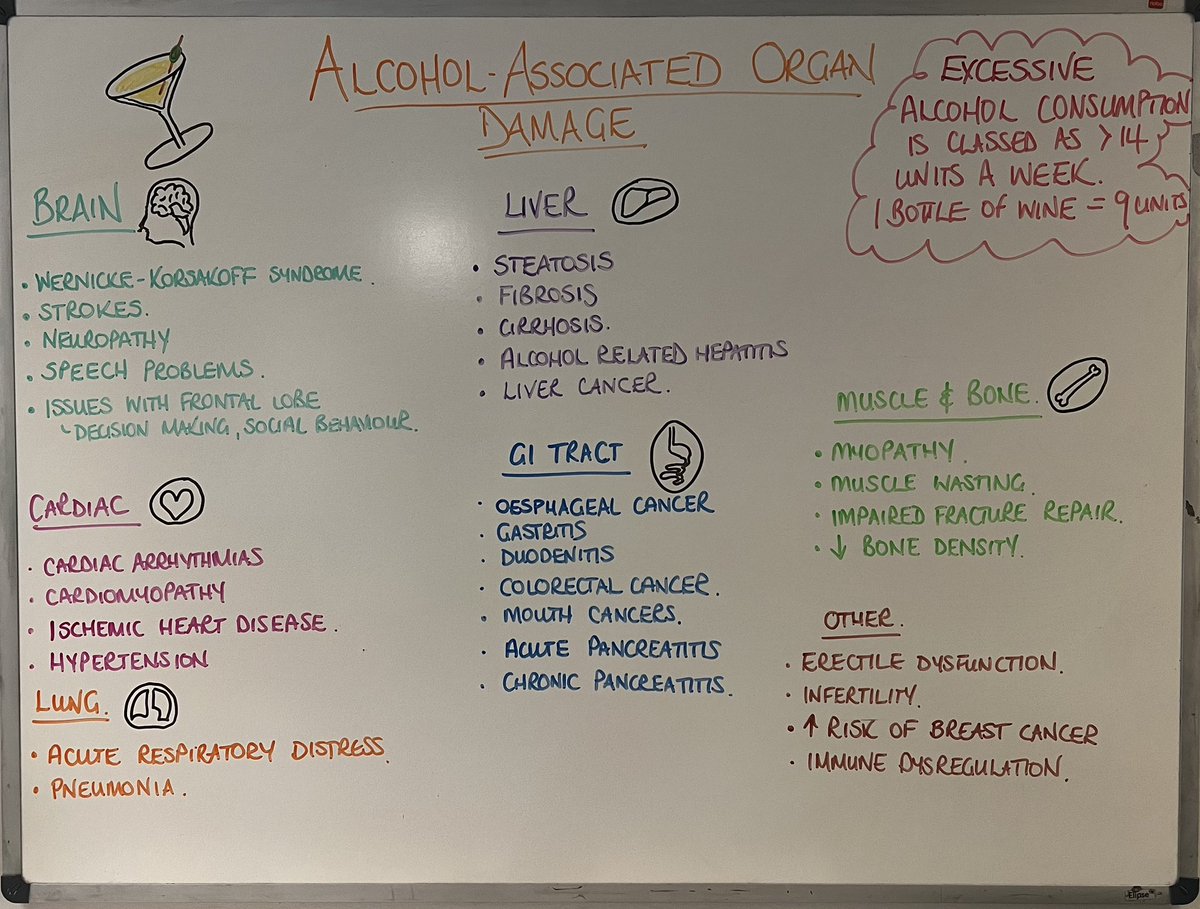 ALCOHOL-ASSOCIATED ORGAN
DAMAGE
EXCESSIVE
ALCOHOL CONSUMPTION
IS CLASSED AS > 14
UNITS A WEEK.
1 BOTTLE OF WINE = 9 UNITS
BRAIN
• WERNICKE-KORSAKOFF SYNDROME.
• STROKES.
• NEUROPATHY
• SPEECH PROBLEMS.
• ISSUES WITH FRONTAL LOBE
↳ DECISION MAKING, SOCIAL BEHAVIOUR.
CARDIAC
• CARDIAC ARRHYTHMIAS
• CARDIOMYOPATHY
• ISCHEMIC HEART DISEASE.
• HYPERTENSION
LUNG.
• ACUTE RESPIRATORY DISTRESS.
• PNEUMONIA.
LIVER
• STEATOSIS
• FIBROSIS
• CIRRHOSIS.
• ALCOHOL RELATED HEPATITIS
• LIVER CANCER.
GI TRACT
• OESPHAGEAL CANCER
• GASTRITIS
• DUODENITIS
• COLORECTAL CANCER.
• MOUTH CANCERS.
• ACUTE PANCREATITIS
• CHRONIC PANCREATITIS.
MUSCLE & BONE.
• MYOPATHY.
• MUSCLE WASTING.
• IMPAIRED FRACTURE REPAIR.
• ↓ BONE DENSITY.
OTHER.
• ERECTILE DYSFUNCTION.
• INFERTILITY.
• ↑ RISK OF BREAST CANCER
• IMMUNE DYSREGULATION.
nobo
Elipse